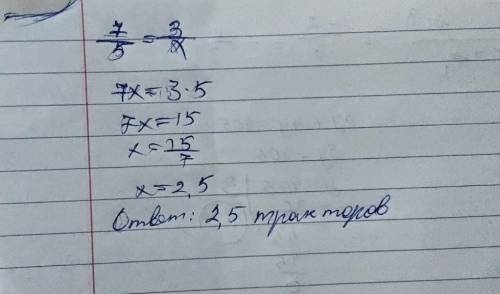 7/5 = 3/x
7x = 3·5
7x = 15
x = 15/7
x = 2,5
Ответ: 2,5 тракторов